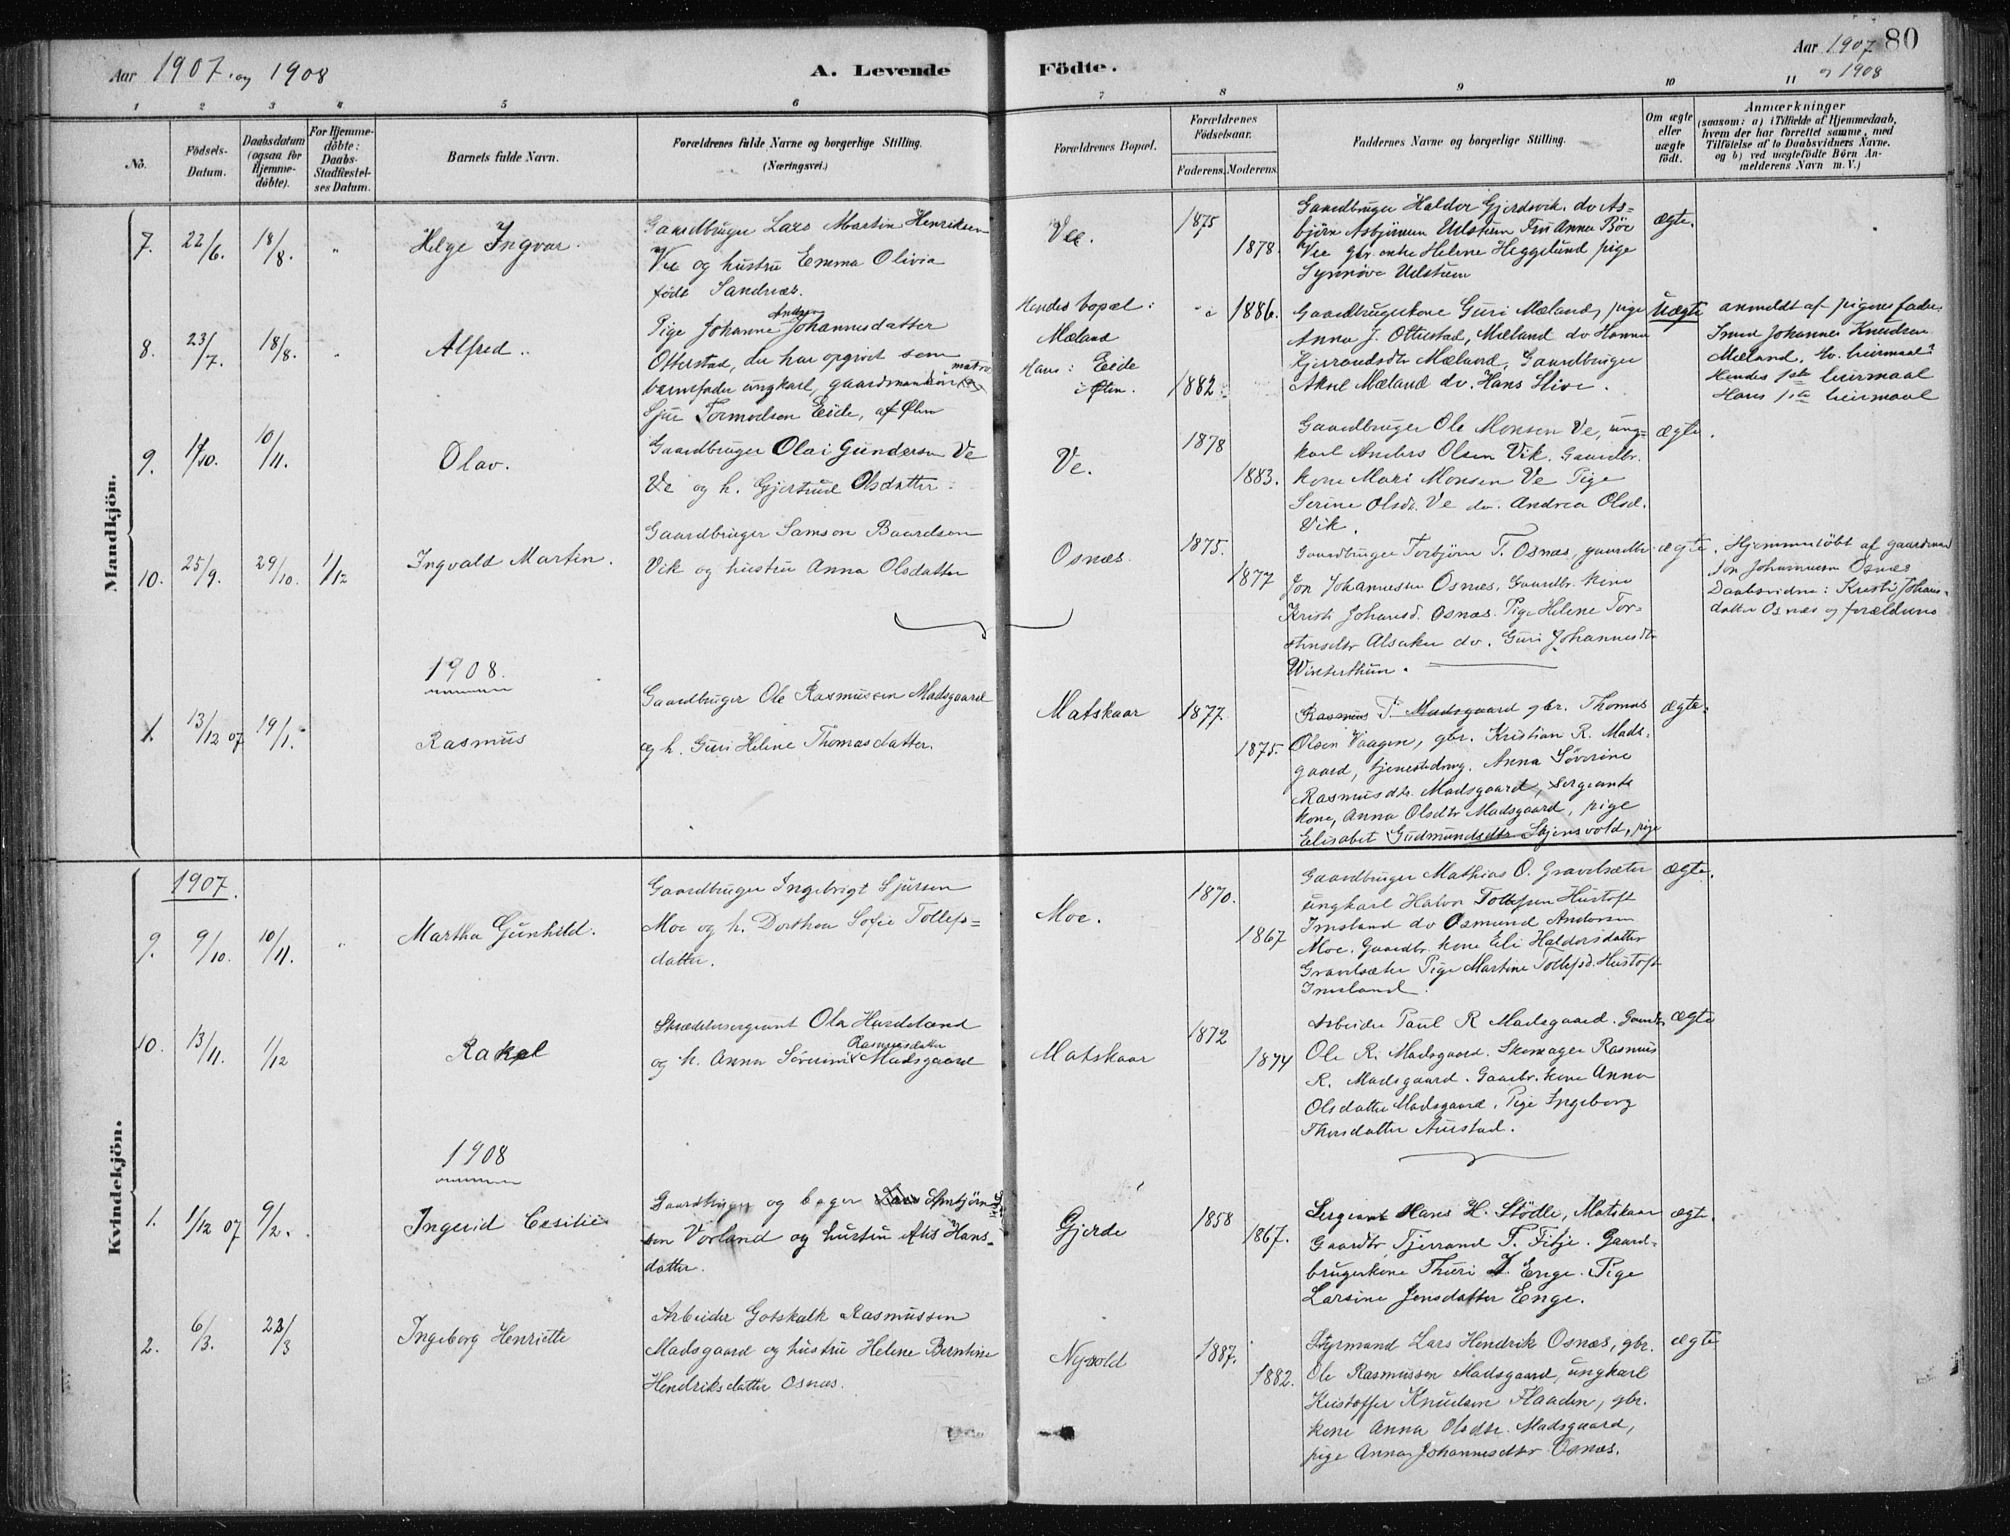 Aar 1907 og 1908
A. Levende
Födte.
Aar 1907 80
og 1908
1 2 3 4 5 6 7 8 9 10 11
No.
Födsels-Datum.
Daabsdatum (ogsaa for Hjemmedöbte).
For Hjemmedöbte: Daabs-Stadfæstelses Datum.
Barnets fulde Navn.
Forældrenes fulde Navne og borgerlige Stilling.
(Næringsvei.)
Forældrenes Bopæl.
Forældrenes Födselsaar.
Faderens. Moderens.
Faddernes Navne og borgerlige Stilling.
Om ægte eller uægte födt.
Anmærkninger
(saasom: a) i Tilfælde af Hjemmedaab, hvem der har forrettet samme, med Tilföielse af to Daabsvidners Navne. og b) ved uægtefödte Börn Anmelderens Navn m. V.)
Mandkjön.
7. 22/6. 18/8. "
Helge Ingvar.
Gaardbruger Lars Martin Henriksen
Vee og hustru Emma Olivia
födt Sandnæs.
Vee.
1875
1878.
Gaardbruger Haldor Gjerdsvik. do As-
björn Asbjörnsen Udstuen Fru Anna Böe
Vee gbr. enke Helene Heggelund pige
Synnöve Udstuen
ægte.
8. 23/7. 18/8. "
Alfred.
Pige Johanne Johannesdatter
Otterstad, der har opgivet som
barnefader ungkarl, gaardmand
Sjur Tormodsen Eide, af Ølen
Hendes bopæl:
Mæland
Hans: Eide
i Ølen.
1886.
1882
Gaardbrugerkone Guri Mæland, pige
Anna J. Otterstad, Mæland do Hanna
Gjerrandsdtr Mæland, Gaardbruger
Aksel Mæland do. Hans Slive.
Uægte
anmeldt af pigens fader
Johannes Knudsen
Mæland.
Hendes 1ste leiermaal
Hans 1ste leiermaal
9. 11/10. 10/11.
Olav.
Gaardbruger Olai Gundersen Ve
Ve og h. Gjertrud Olsdatter
Ve.
1878
1883.
Gaardbruger Ole Monsen Ve, ung-
karl Anders Olsen Vik. Gaardbr.
kone Mari Monsen Ve Pige
Serine Olsdr. Ve do. Andrea Olsd.
Vik.
ægte.
10. 25/9. 29/10. 1/12
Ingvald Martin.
Gaardbruger Samson Baardsen
Vik og hustru Anna Olsdatter
Osnæs.
1875.
1877
Gaardbruger Torbjörn T. Osnæs, gaardbr.
Jon Johannesen Osnæs, Gaardbr. kone
Kristi Johansd. Osnæs. Pige Helene Tor-
stensdtr Alsaker do. Guri Johannesdtr
Winterthun.
ægte.
Hjemmedöbt af gaardman
Jon Johannesen Osnæs
Daabsvidne: Kristi Johans-
datter Osnæs og forældrene
1908.
1. 13/12 07 19/1.
Rasmus
Gaardbruger Ole Rasmussen Madsgaard
og h. Guri Helene Thomasdatter.
Matskaar
1877.
1875.
Rasmus T. Madsgaard gbr. Thomas
Olsen Vaagen, gbr. Kristian R. Mads-
gaard, tjenestedreng. Anna Söverine
Rasmusdtr. Madsgaard, sergeants
kone, Anna Olsdtr Madsgaard, pige
Elisabet Gudmundsdtr Skjensvold, pige
ægte.
Kvindekjön.
1907.
9. 9/10. 10/11. "
Martha Gunhild.
Gaardbruger Ingebrigt Sjursen
Moe og h. Dorthea Sofie Tollefs-
datter.
Moe.
1870.
1867
Gaardbruger Mathias O. Gravelsæter
ungkarl Halvor Tollefsen Hustoft
Imsland do Osmund Andersen
Moe. Gaardbr. kone Eli Haldorsdatter
Gravelsæter Pige Martine Tollefsd. Hustoft
Imsland.
ægte.
10. 13/11. 1/12
Rakel
Skræddersergeant Ola Hardeland
og h. Anna Sörine Rasmusdatter Madsgaard
Matskaar
1872
1874
Arbeider Paul R Madsgaard. Gaardbr.
Ole R. Madsgaard. Skomager Rasmus
R. Madsgaard. Gaardbr. kone Anna
Olsdatter Madsgaard, Pige Ingeborg
Thorsdatter Aurstad.
ægte
1908
1. 1/12 07 9/2.
Ingerid Cecilie
Gaardbruger og bager
sen Vorland og hustru Hans-
datter.
Gjerde
1858
1867.
Sergeant Hans H. Stödle, Matskaar
Gaardbr, Tjerrand T. Fitje. Gaard-
brugerkone Thuri J. Enge. Pige
Larsine Jensdatter Enge.
ægte.
2. 6/3. 22/3
Ingeborg Henriette
Arbeider Gotskalk Rasmussen
Madsgaard og hustru Helene Berntine
Hendriksdatter Osnæs.
Nyvold
1887.
1882.
Styrmand Lars Hendrik Osnæs, gbr.
Ole Rasmussen Madsgaard, ungkarl
Kristoffer Knudsen Flaaden, gbr.
kone Anna Olsdtr. Madsgaard,
pige Anna Johannesdtr Osnæs.
ægte